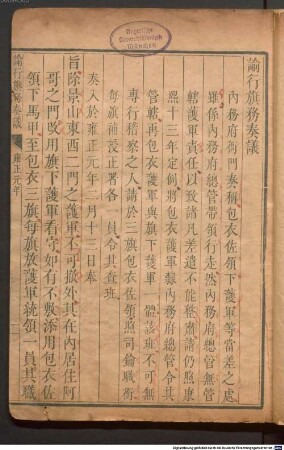 諭行旗務奏議
內務府衙門奏稱包衣佐領下護軍等當差之處
雖係內務府總管帶領行走然內務府總管無管
轄護軍責任以致諸凡差遣不能整肅請仍照康
熙十三年定例將包衣護軍隸內務府總管令其
管轄再包衣護軍與旗下護軍一體該班不可無
專行稽察之人請於三旗包衣佐領照司鑰職銜
每旗補授正署各一員令其查班
奏入於雍正元年二月十三日奉
旨除景山東西二門之護軍不可撤外其在內居住阿
哥之門既用旗下護軍看守如有不敷添用包衣佐
領下馬甲至包衣三旗每旗放護軍統領一員其職
諭行旗務奏議
雍正元年
Bayerische
Staatsbibliothek
München